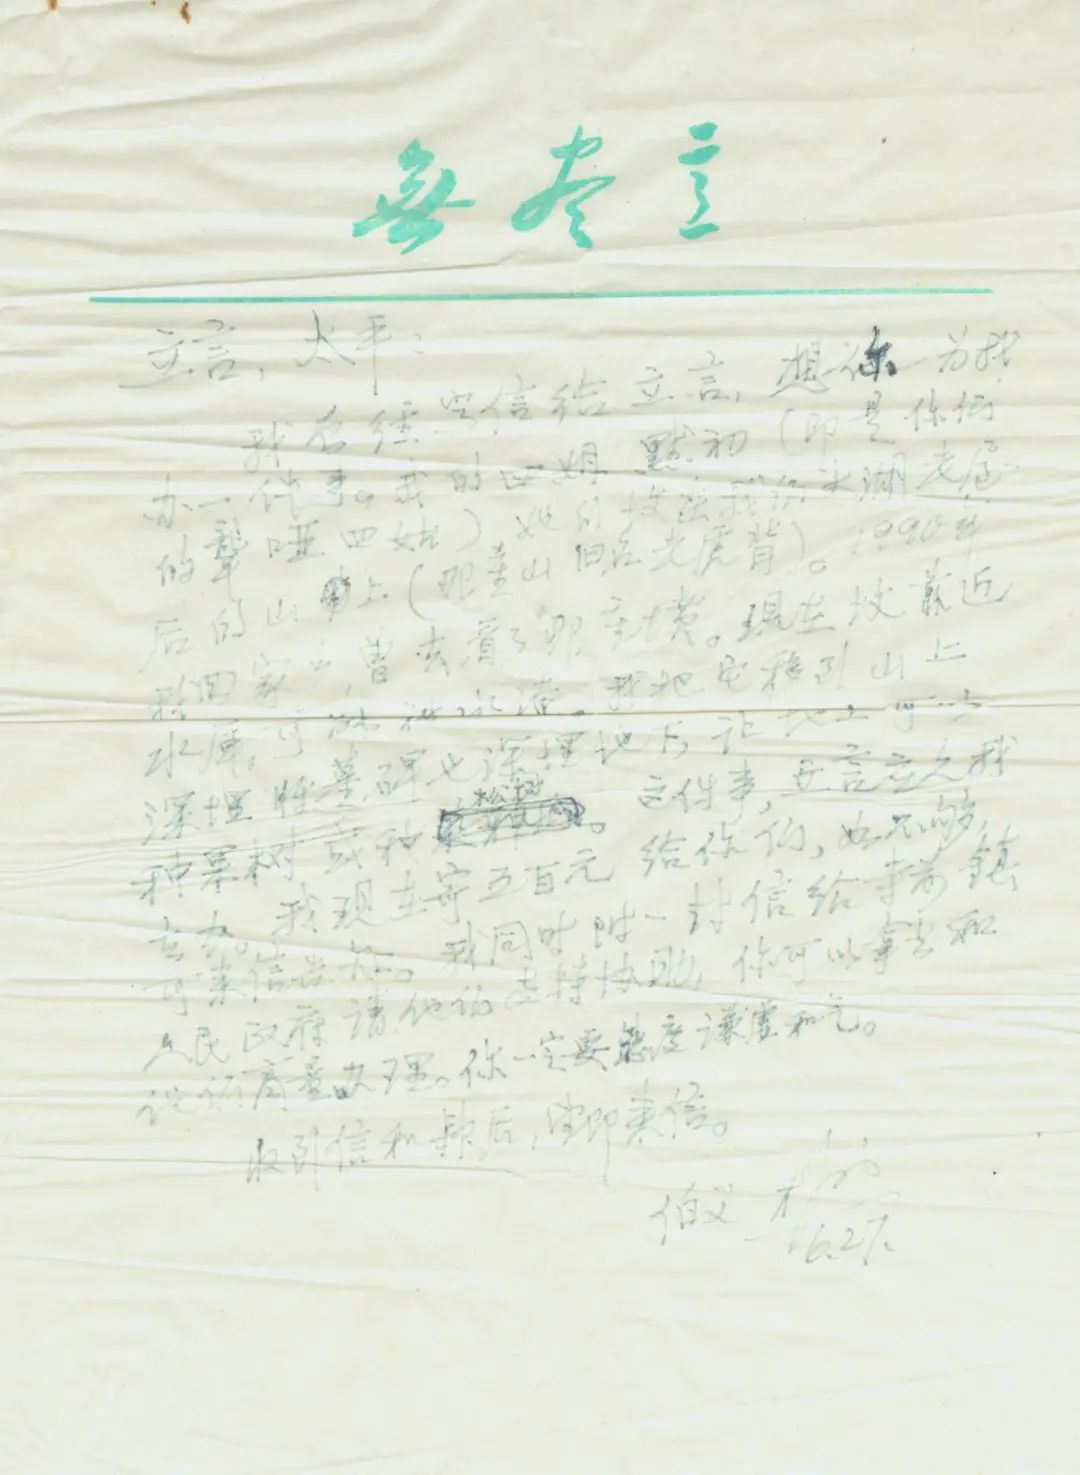 無盡意
立言、太平：
我名经与信给立言，想你为我
办一件事。我的四姐默初（即是你们
的聋哑四姑）她的坟在我们太湖老屋
后的山上（即董山旧名老虎背）。1990年
我回家乡，曾去看了即主坟。现在坟前近
水库，可能被水淹，我把它移到山上
深埋 将墓碑也深埋地下，让地上可以
种果树或种松树。这件事，立言应允我
去办。我现在寄五百元给你们，如不够，
可来信告诉。我同时附一封信给寺前镇
人民政府请他们支持协助，你可以拿去和
他们商量办理。你一定要态度谦虚和气。
收到信和款后，望即来信。
伯父 朴
6.27.